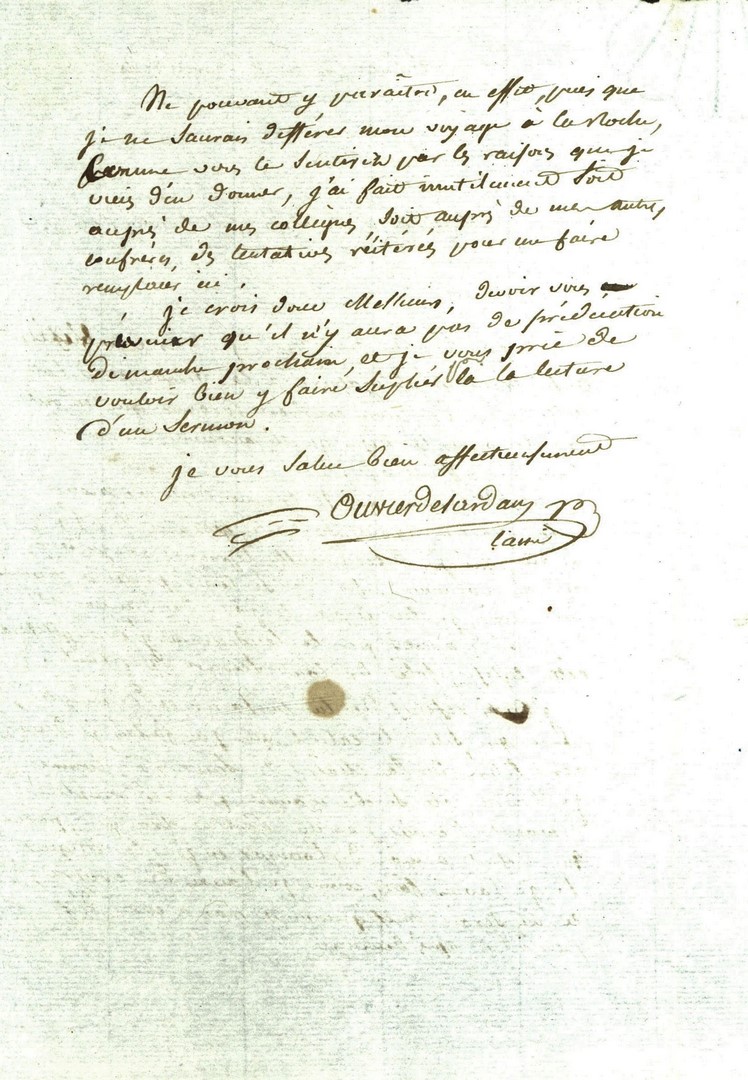 Ne pouvant y paraître, en effet, puis que
je ne saurais différer mon voyage à la Roche,
comme vous le sentirez par les raisons que je
viens d'en donner, j'ai fait inutilement soit
auprès de mes collègues, soit auprès de mes autres
confrères, des tentatives réitérées pour me faire
remplacer ici.
je crois donc Messieurs, devoir vous
prévenir qu'il n'y aura pas de prédication
dimanche prochain, et je vous prie de
vouloir bien y faire supléer la lecture
d'un Sermon.
je vous salue bien affectueusement
Olivier desardans
l'ainé